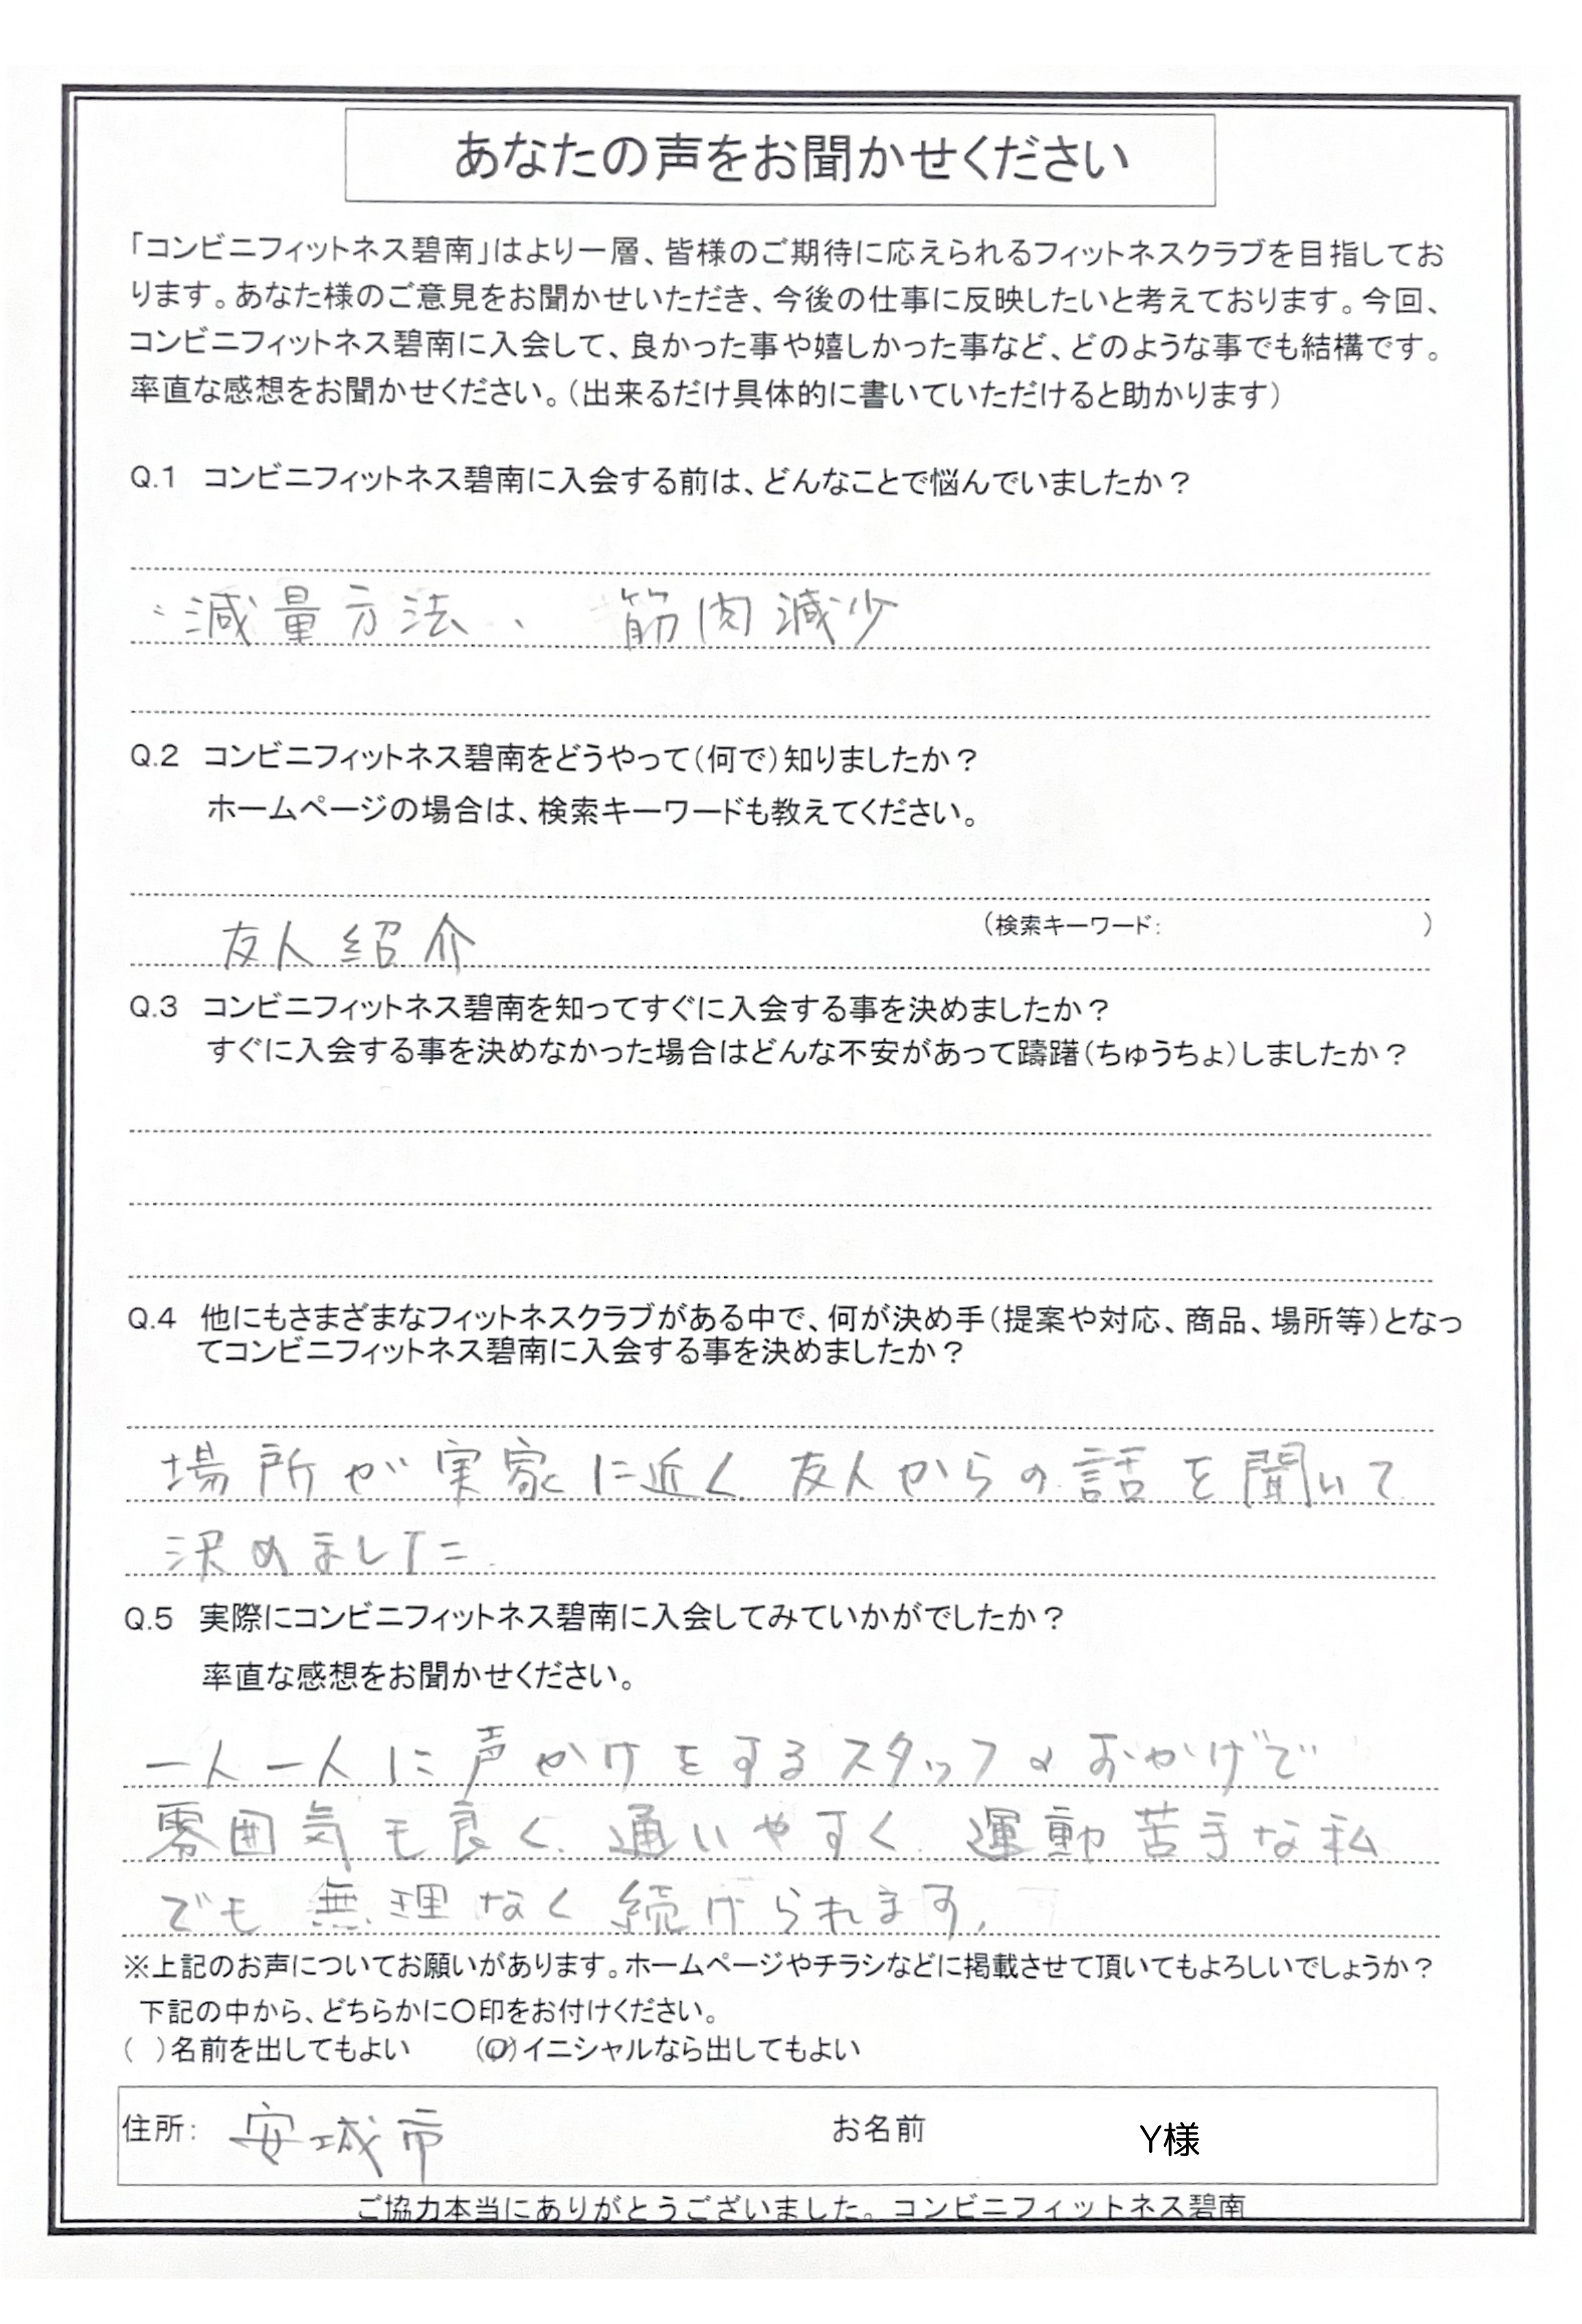 あなたの声をお聞かせください
「コンビニフィットネス碧南」はより一層、皆様のご期待に応えられるフィットネスクラブを目指してお
ります。あなた様のご意見をお聞かせいただき、今後の仕事に反映したいと考えております。今回、
コンビニフィットネス碧南に入会して、良かった事や嬉しかった事など、どのような事でも結構です。
率直な感想をお聞かせください。(出来るだけ具体的に書いていただけると助かります)
Q.1 コンビニフィットネス碧南に入会する前は、どんなことで悩んでいましたか?
減量方法、 筋肉減少
Q.2 コンビニフィットネス碧南をどうやって(何で)知りましたか?
ホームページの場合は、検索キーワードも教えてください。
友人紹介 (検索キーワード: )
Q.3 コンビニフィットネス碧南を知ってすぐに入会する事を決めましたか?
すぐに入会する事を決めなかった場合はどんな不安があって躊躇(ちゅうちょ)しましたか?
Q.4 他にもさまざまなフィットネスクラブがある中で、何が決め手(提案や対応、商品、場所等)となっ
てコンビニフィットネス碧南に入会する事を決めましたか?
場所が実家に近く 友人からの話を聞いて
決めました.
Q.5 実際にコンビニフィットネス碧南に入会してみていかがでしたか?
率直な感想をお聞かせください。
一人一人に声かけをするスタッフのおかげで
雰囲気も良く、通いやすく 運動苦手な私
でも無理なく続けられます。
※上記のお声についてお願いがあります。ホームページやチラシなどに掲載させて頂いてもよろしいでしょうか?
下記の中から、どちらかに〇印をお付けください。
( )名前を出してもよい (〇)イニシャルなら出してもよい
住所: 安城市 お名前 Y様
ご協力本当にありがとうございました。コンビニフィットネス碧南